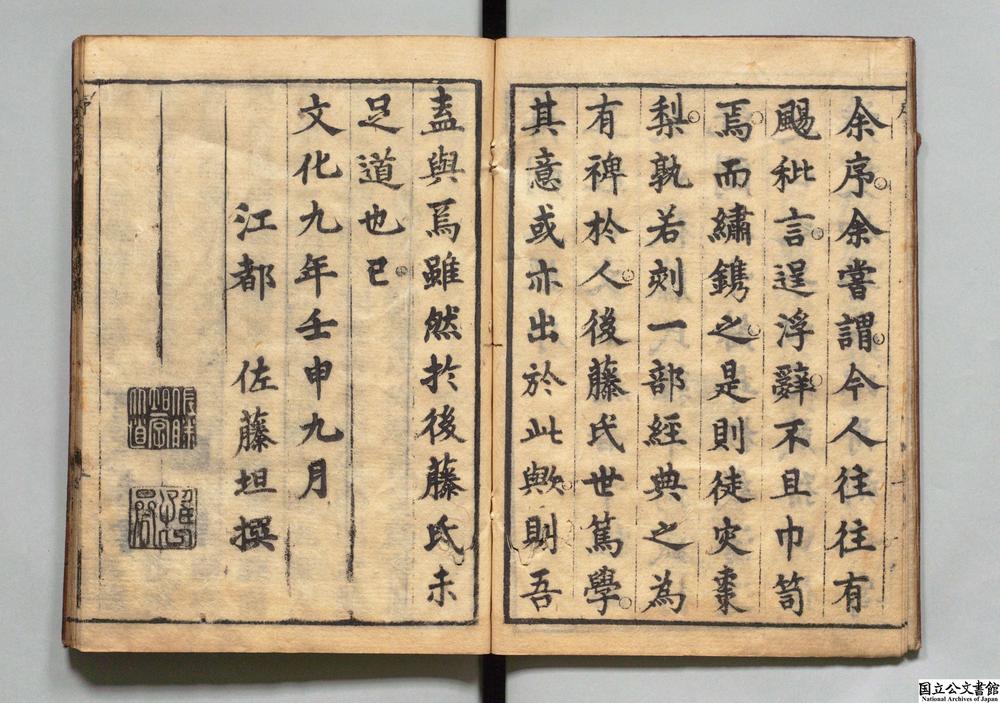 余序余嘗謂今人往往有
颺秕言逞浮辭不且巾笥
焉而繡鐫之是則徒灾棗
梨孰若刻一部經典之為
有裨於人後藤氏世篤學
其意或亦出於此歟則吾
盍與焉雖然扵後藤氏未
足道也已
文化九年壬申九月
江都 佐藤坦撰
国立公文書館
National Archives of Japan